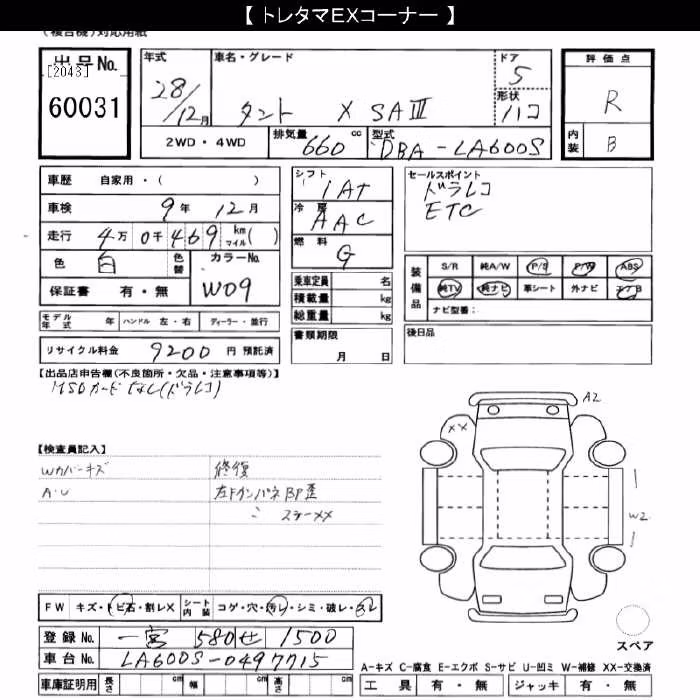 【 トレタマEXコーナー 】
(複合機)対応用紙
出品No.
[2043]
60031
年式
28/12月
車名・グレード
タント X SAⅢ
ドア
5
形状
ハコ
評価点
R
内装
B
2WD・4WD
排気量
660 cc
型式
DBA-LA600S
車歴 自家用・( )
車検 9年 12月
走行 4万 0千 4 6 9 km マイル ( )
色 白 色替
カラーNo.
W09
保証書 有・無
シフト
IAT
冷房
AAC
燃料
G
乗車定員 名
積載量 kg
総重量 kg
書類期限
月 日
セールスポイント
ドラレコ
ETC
装備品
S/R 純A/W P/S P/W ABS
純TV 純ナビ 革シート 外ナビ エアB
ナビ型番:
後日品
モデル年式 年 ハンドル 左・右 ディーラー・並行
リサイクル料金 9200 円 預託済
【出品店申告欄(不良箇所・欠品・注意事項等)】
MSDカードなし(ドラレコ)
【検査員記入】
Wカバーキズ
A・U
修復
左Fインパネ BP歪
ミ ステーXX
A2
XX
W2
スペア
FW キズ・トビ石・割レX
シート内装 コゲ・穴・汚レ・シミ・破レ・
登録No. 一宮 580 せ 1500
車台No. LA600S-0497715
車庫証明用 長さ cm 幅 cm 高さ cm
A-キズ C-腐食 E-エクボ S-サビ U-凹ミ W-補修 XX-交換済
工具 有・無 ジャッキ 有・無